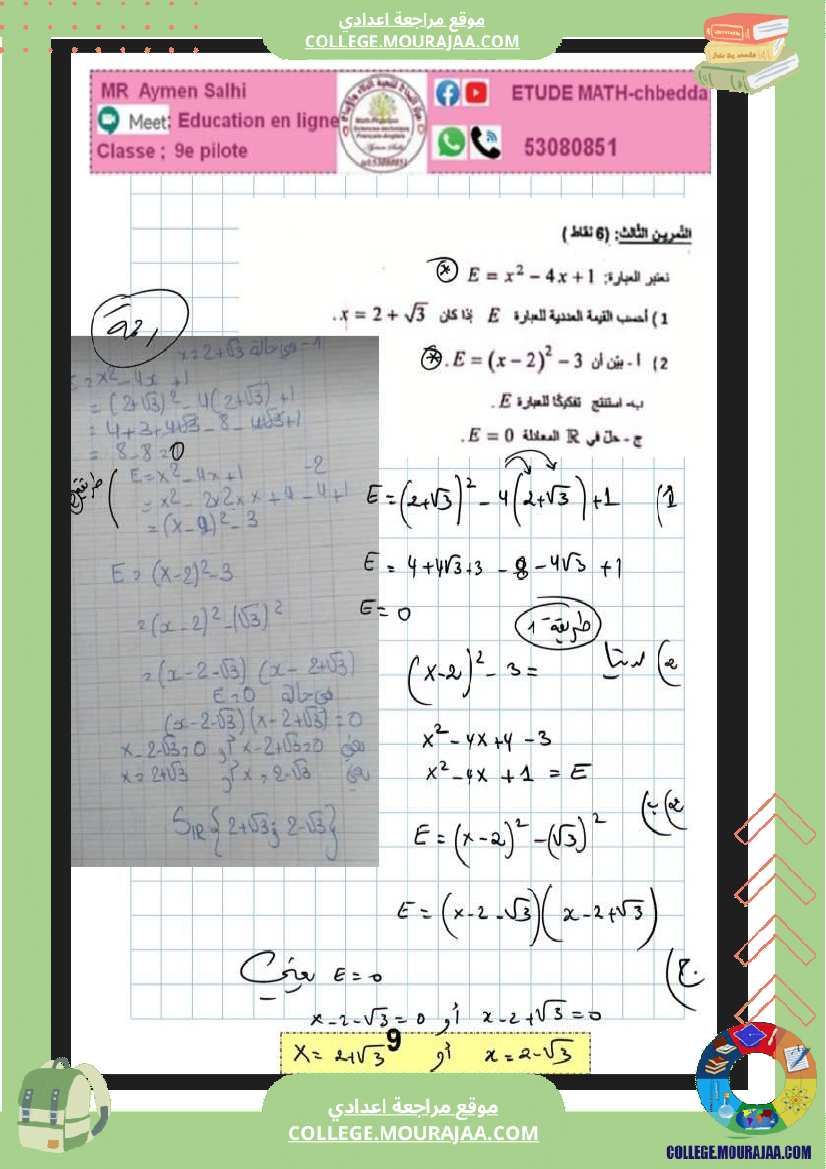 موقع مراجعة اعدادي
COLLEGE.MOURAJAA.COM
MR Aymen Salhi
Meet: Education en ligne
Classe ; 9e pilote
ETUDE MATH-chbedda
53080851
التمرين الثالث: (6 نقاط)
نعتبر العبارة: E = x² − 4x + 1
1) أحسب القيمة العددية للعبارة E إذا كان x = 2 + √3 .
2) أ - بيّن أن E = (x − 2)² − 3 .
ب- استنتج تفكيكًا للعبارة E .
ج - حلّ في ℝ المعادلة E = 0 .
1 - في حالة x = 2+√3
E = x² - 4x + 1
= (2+√3)² - 4(2+√3) + 1
= 4+3+4√3 - 8 - 4√3+1
= 8-8=0
2-
E = x² - 4x + 1
= x² - 2x2xx + 4 - 4 + 1
= (x - 2)² - 3
E = (x-2)² - 3
= (x-2)² - (√3)²
= (x-2-√3) (x-2+√3)
في حالة E=0
(x-2-√3)(x-2+√3)=0
يعني x-2+√3=0 أو x-2-√3=0
يعني x=2-√3 أو x=2+√3
S_IR {2+√3; 2-√3}
1) E = (2+√3)² - 4(2+√3) + 1
E = 4+4√3+3 - 8 - 4√3 + 1
E = 0
طريقة - 1
2) لدينا
(x-2)² - 3 =
x² - 4x + 4 - 3
x² - 4x + 1 = E
2) ب)
E = (x-2)² - (√3)²
E = (x-2-√3)(x-2+√3)
ج)
E = 0 يعني
x-2-√3 = 0 أو x-2+√3 = 0
x = 2+√3 أو x = 2-√3
9
موقع مراجعة اعدادي
COLLEGE.MOURAJAA.COM
COLLEGE.MOURAJAA.COM